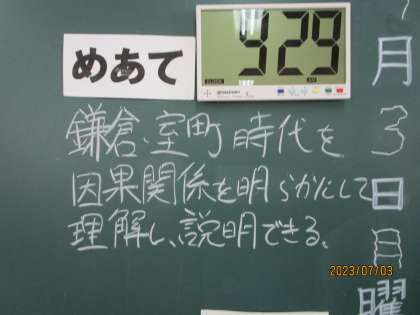 めあて
429
鎌倉・室町時代を
因果関係を明らかにして
理解し、説明できる。
月3日月曜
2023/07/03